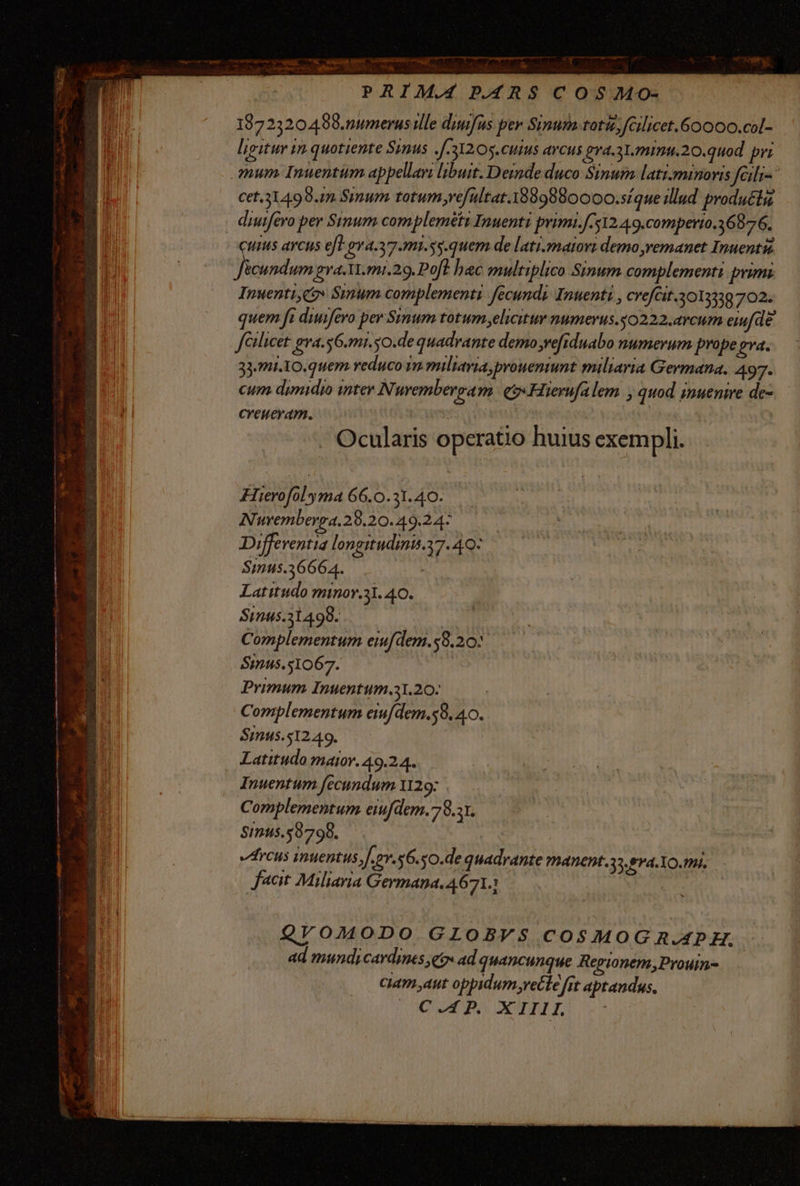 PRIMA PARS COSMO-
1872320488.numerus ille diuisus per Sinum totū, scilicet.60000.col-
ligitur in quotiente Sinus .s.31205.cuius arcus gra.31.minu.20.quod pri
mum Inuentum appellari libuit. Deinde duco Sinum lati.minoris scili=
cet.31498.in Sinum totum,resultat.1889880000.sique illud productū
diuisero per Sinum complemēti Inuenti primi.s.51249.comperio.36876.
cuius arcus est gra.37.mi.55.quem de lati.maiori demo,remanet Inuentū
secundum gra.11.mi.29. Post hac multiplico Sinum complementi primi
Inuenti,& Sinum complementi secundi Inuenti , crescit.3013338702.
quem si diuisero per Sinum totum,elicitur numerus.50222.arcum eiusdē
scilicet gra.56.mi.50.de quadrante demo,residuabo numerum prope gra.
33.mi.10.quem reduco in miliaria,proueniunt miliaria Germana. 497.
cum dimidio inter Nurembergam & Hierusalem , quod inuenire de-
creueram.
Ocularis operatio huius exempli.
Hierosolyma 66.0.31.40.
Nuremberga.28.20.49.24:
Differentia longitudinis.37.40:
Sinus.36664.
Latitudo minor.31.40.
Sinus.31498.
Complementum eiusdem.58.20:
Sinus.51067.
Primum Inuentum.31.20:
Complementum eiusdem.58.40.
Sinus.51249.
Latitudo maior.49.24.
Inuentum secundum 1129:
Complementum eiusdem.78.31.
Sinus.58798.
Arcus inuentus,s.gr.56.50.de quadrante manent.33.gra.10.mi.
facit Miliaria Germana.4671.1
QVOMODO GLOBVS COSMOGRAPH.
ad mundi cardines,& ad quancunque Regionem,Prouin=
ciam,aut oppidum,recte sit aptandus.
CAP. XIIII.